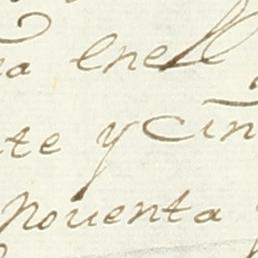 a enel
te y cin
noventa